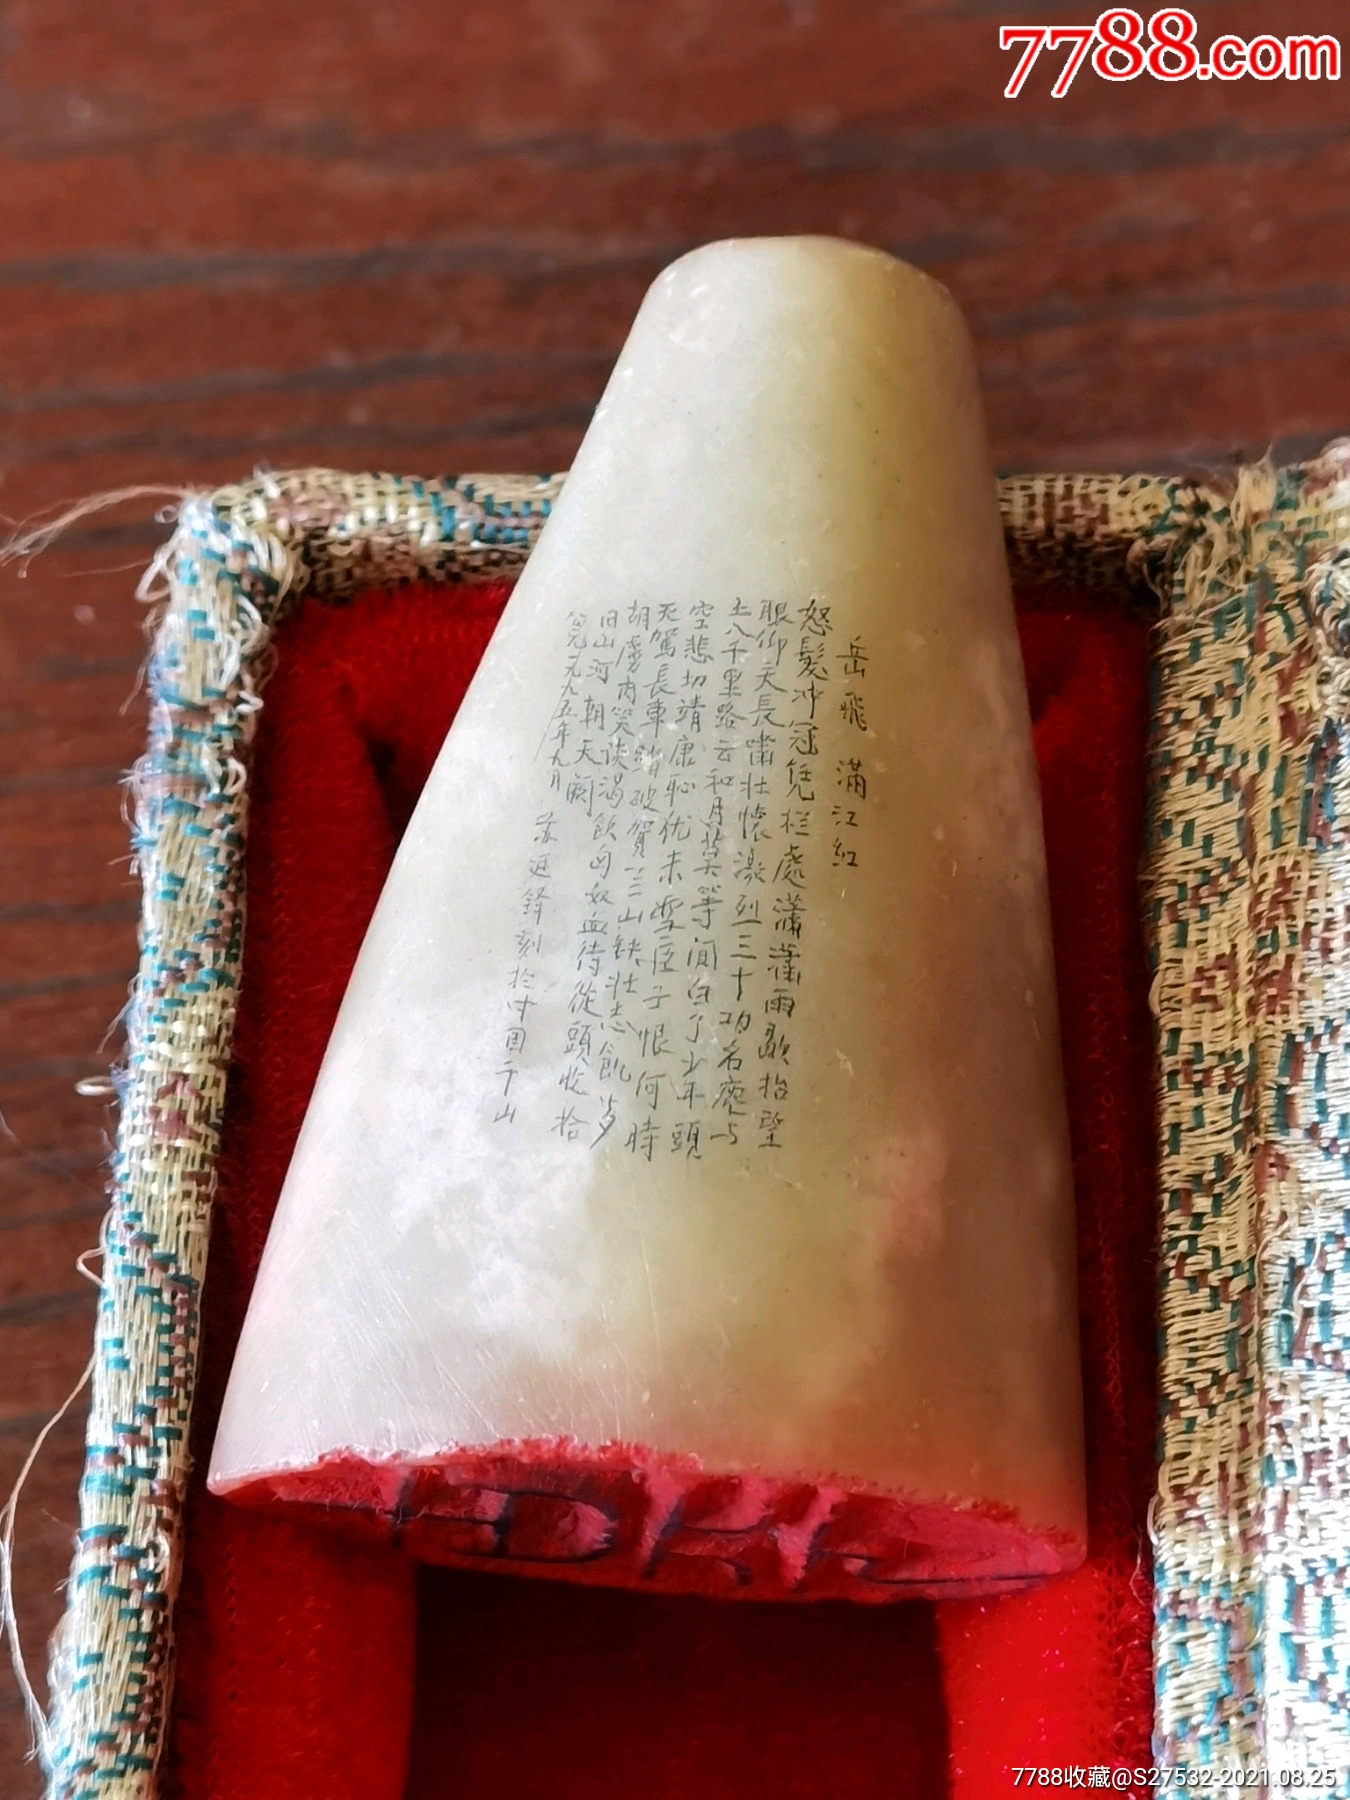 7788.com
岳飛 滿江紅
怒髮冲冠凭栏處瀟瀟雨歇抬望
眼仰天長嘯壮懷激烈三十功名塵与
土八千里路云和月莫等间白了少年頭
空悲切靖康恥优未雪臣子恨何時
灭駕長車踏破賀兰山缺壮志飢
胡虜肉笑谈渴飲匈奴血待從頭收拾
旧山河朝天阙
公元一九九五年九月
延鋒刻於中国千山
7788收藏@S27532-2021.08.25